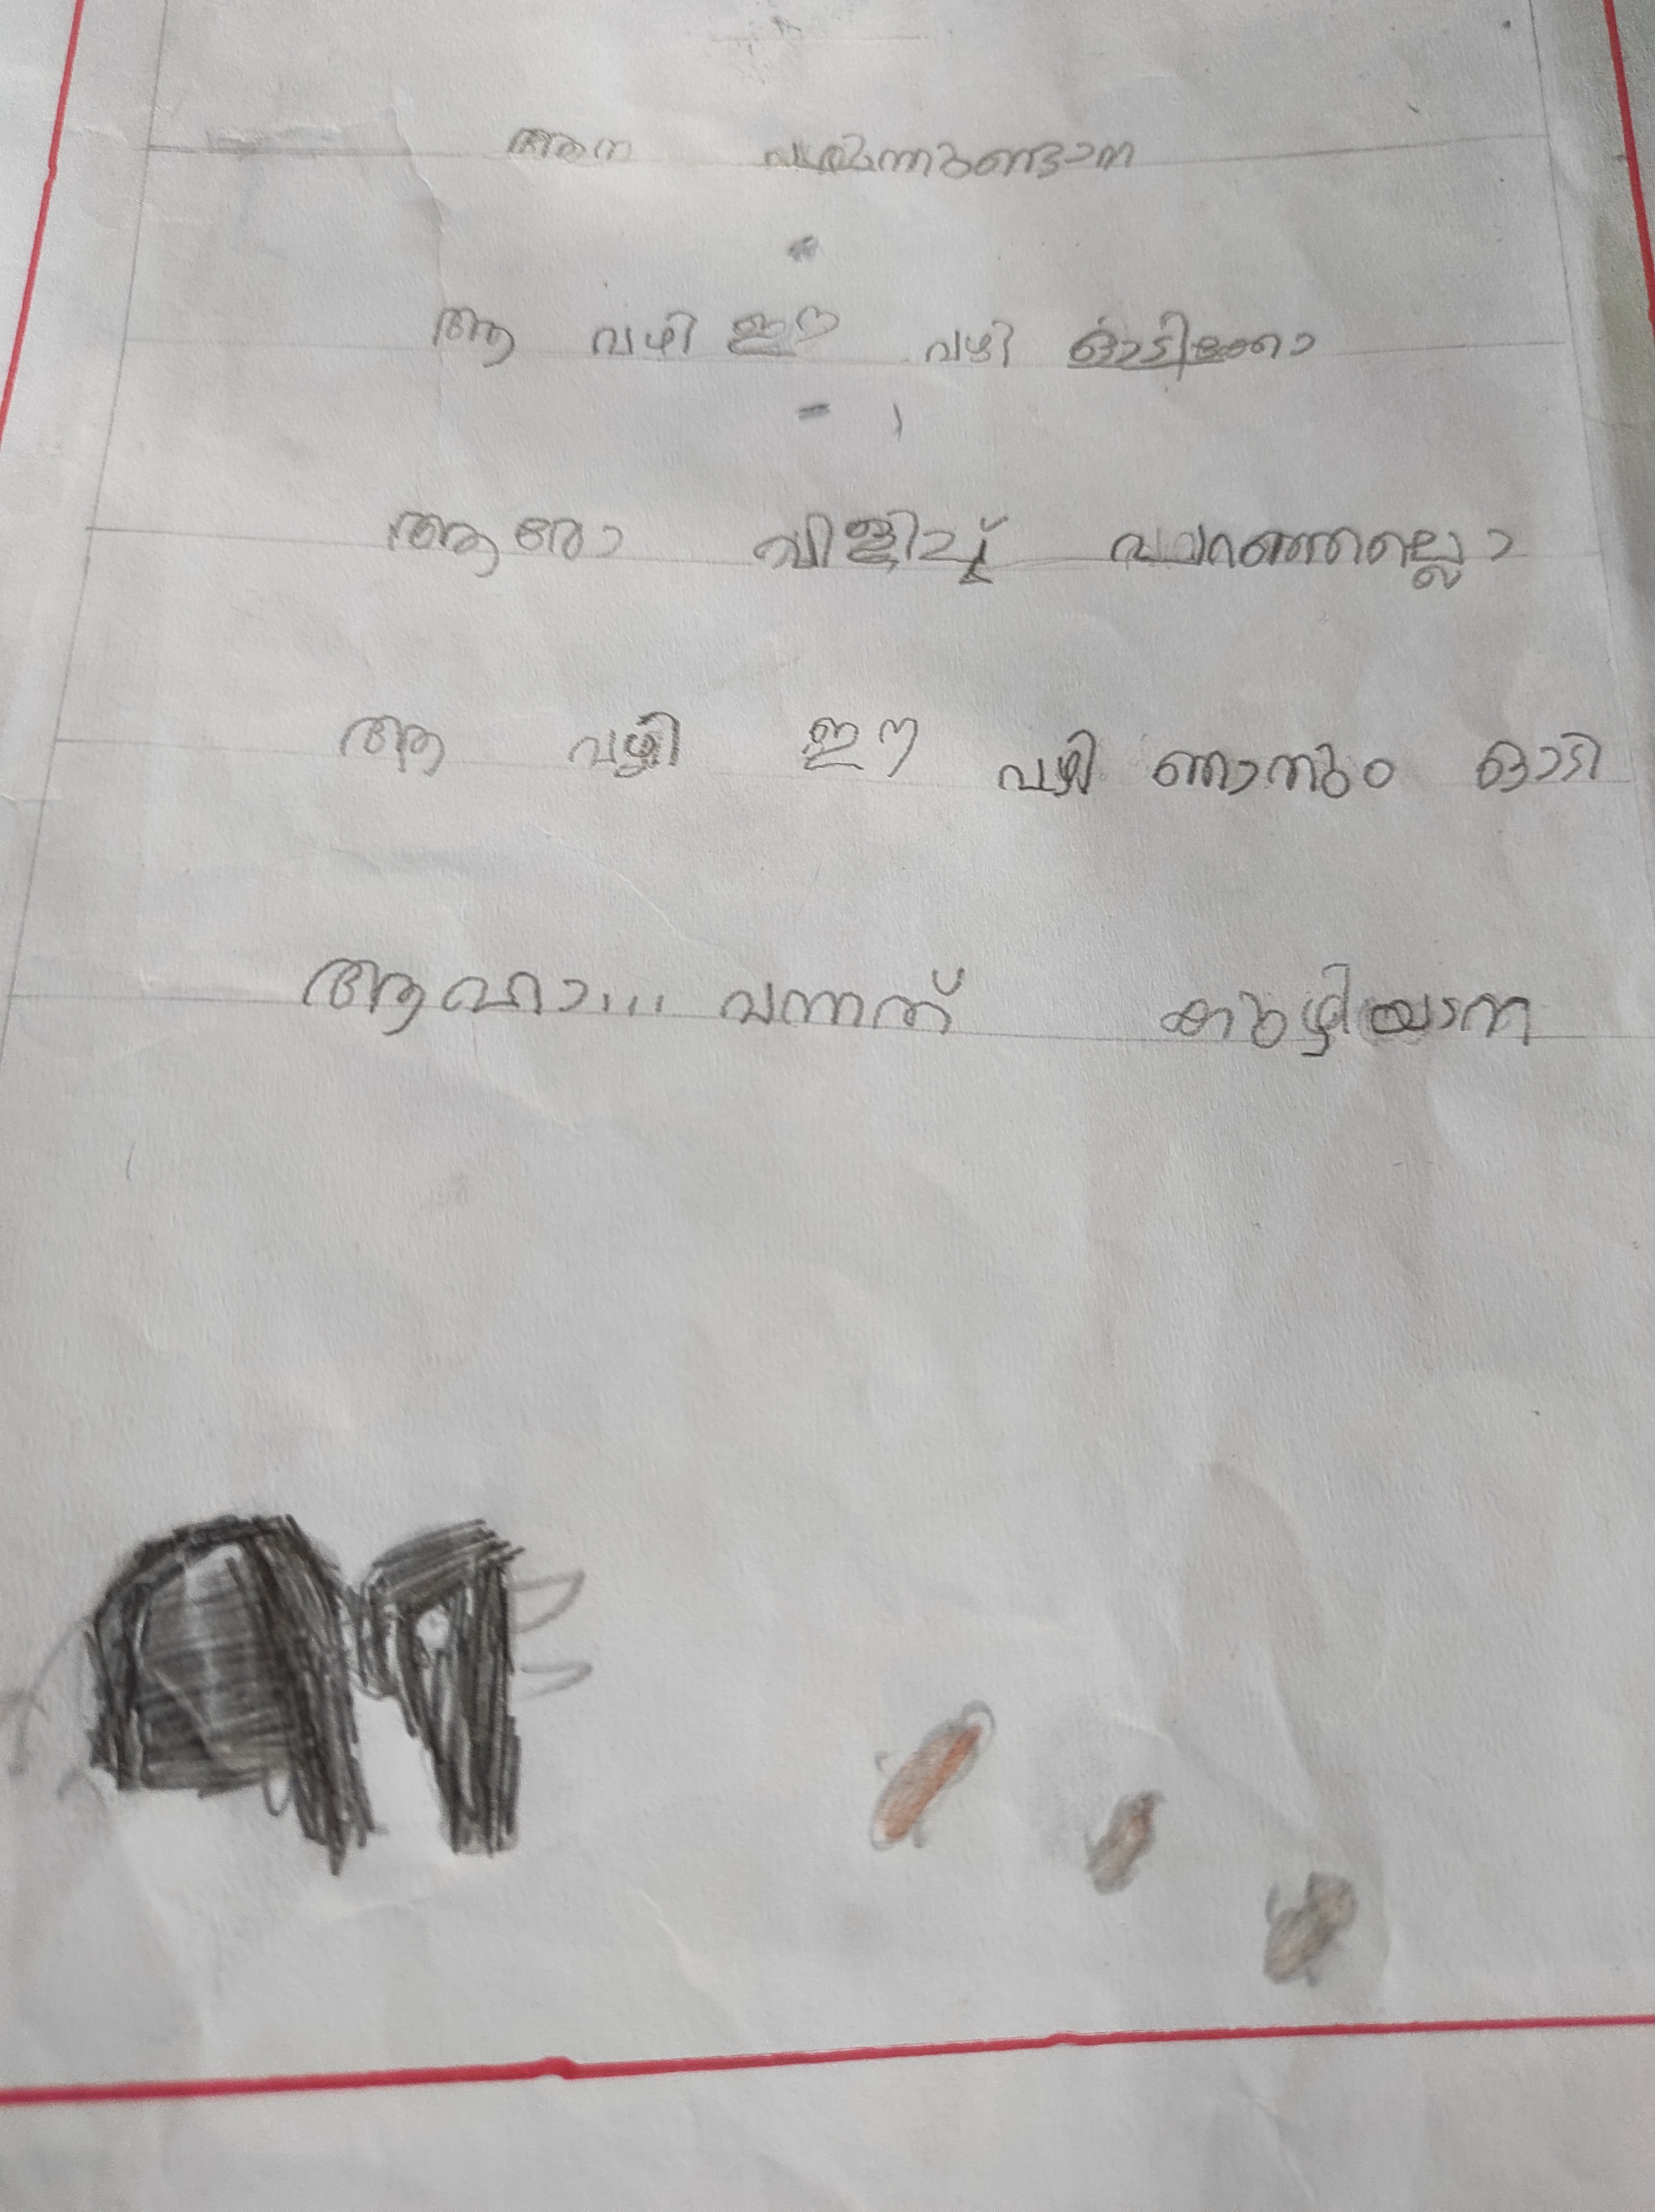 ആന വരുന്നുണ്ടാന
ആ വഴി ഈ വഴി ഓടിക്കോ
ആരോ വിളിച്ചു് പറഞ്ഞല്ലൊ
ആ വഴി ഈ വഴി ഞാനും ഓടി
ആഹാ... വന്നത് കുഴിയാന